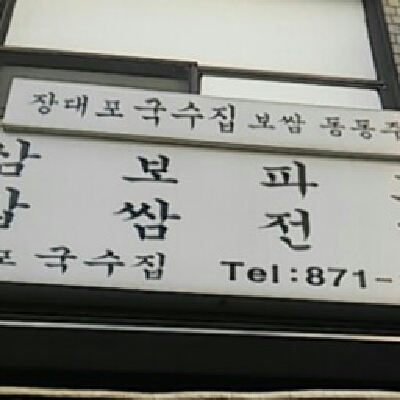 장대포국수집 보쌈 동동주
삼 보 파
합 쌈 전
포국수집 Tel:871-